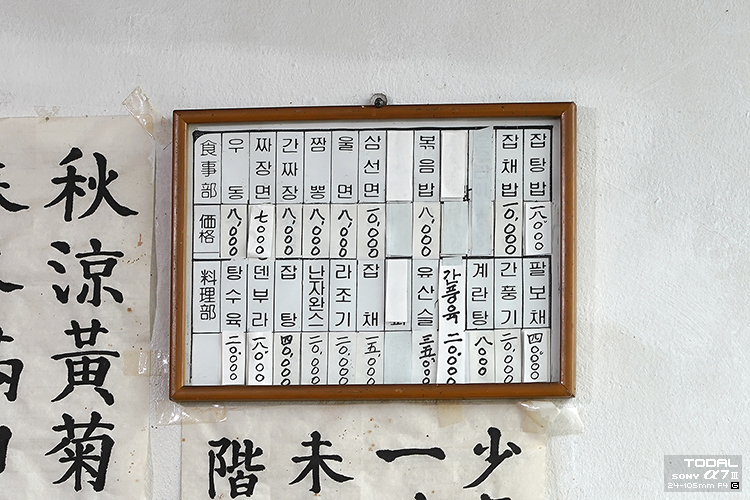 食事部 우동 짜장면 간짜장 짬뽕 울면 삼선면 볶음밥 잡채밥 잡탕밥
価格 八,000 七000 八,000 八,000 八,000 一0,000 八,000 一0,000 一八,000
料理部 탕수육 덴부라 잡탕 난자완스 라조기 잡채 유산슬 간풍육 계란탕 간풍기 팔보채
二0,000 一八,000 四0,000 二0,000 二0,000 一五,000 三五,000 二0,000 八000 二0,000 四0,000
秋涼黃菊
少
一
未
階
TODAL
SONY α7 III
24-105mm F4 G